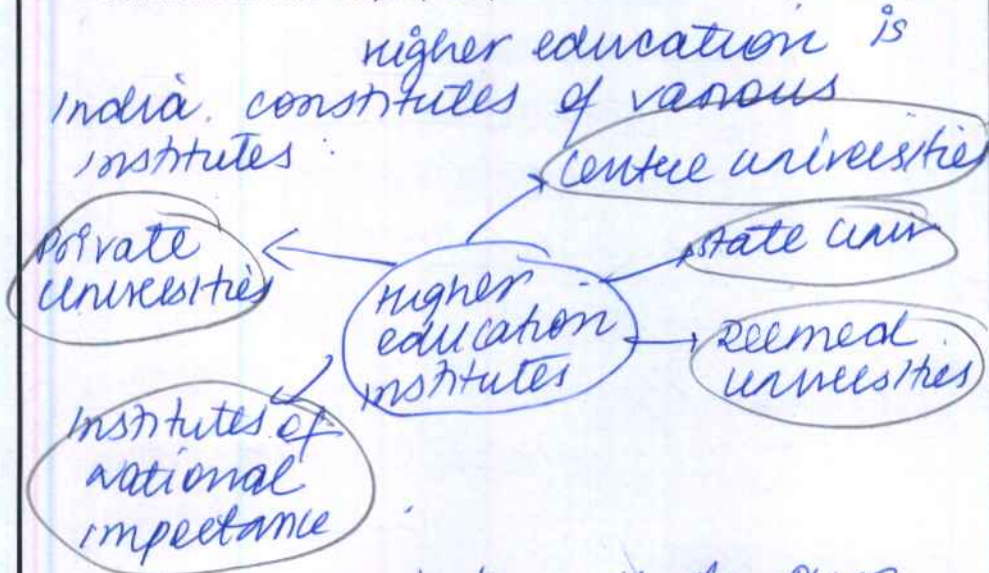 Higher education is
India. constitutes of various
institutes :
Centre universities
Private
universities
State univ
Higher
education
institutes
Deemed
universities
Institutes of
national
importance